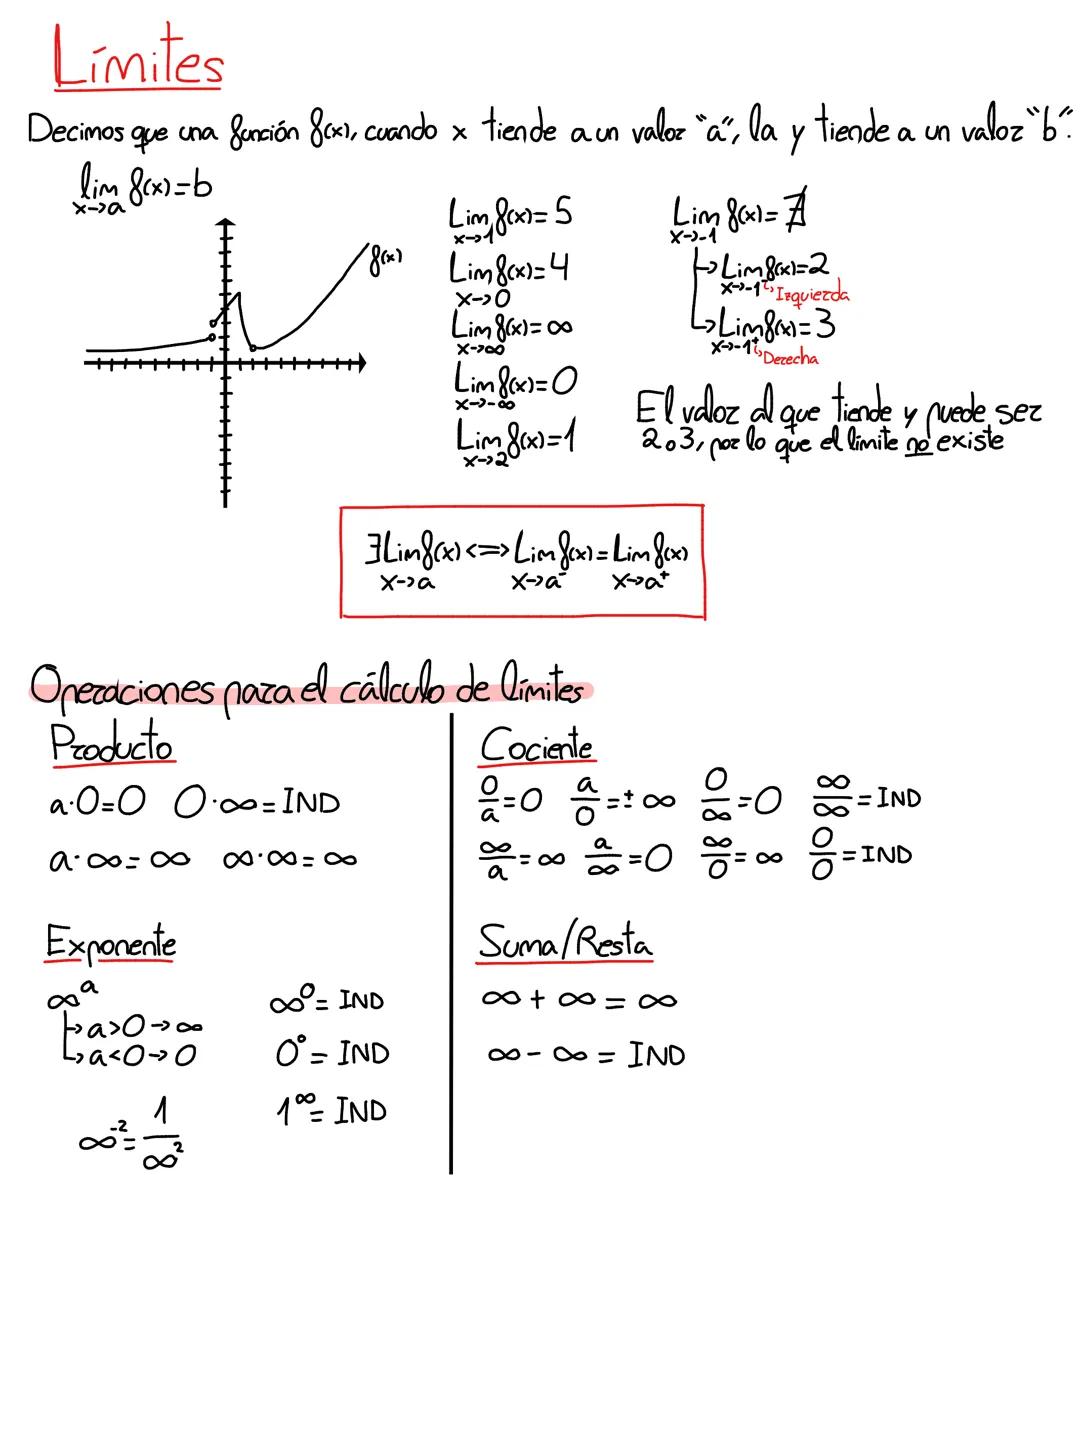 Límites
Decimos que una función f(x), cuando x tiende a un valor "a", la y tiende a un valor "b".
lim f(x)=b
x->a
f(x)
Lim f(x)= 5
x->1
Lim f(x)=4
x->0
Lim f(x)=∞
x->∞
Lim f(x)=0
x->-∞
Lim f(x)=1
x->2
Lim f(x)=∄
x->-1
↳Lim f(x)=2
x->-1⁻↳Izquierda
↳Lim f(x)=3
x->-1⁺↳Derecha
El valor al que tiende y puede ser
2 o 3, por lo que el límite no existe
∃Lim f(x)<=>Lim f(x)=Lim f(x)
x->a x->a⁻ x->a⁺
Operaciones para el cálculo de límites
Producto
a·0=0 0·∞=IND
a·∞=∞ ∞·∞=∞
Cociente
0/a=0 a/0=±∞ 0/∞=0 ∞/∞=IND
∞/a=∞ a/∞=0 ∞/0=∞ 0/0=IND
Exponente
∞^a
↳a>0->∞
↳a<0->0
∞^-2=1/∞^2
∞^0=IND
0^0=IND
1^∞=IND
Suma/Resta
∞+∞=∞
∞-∞=IND